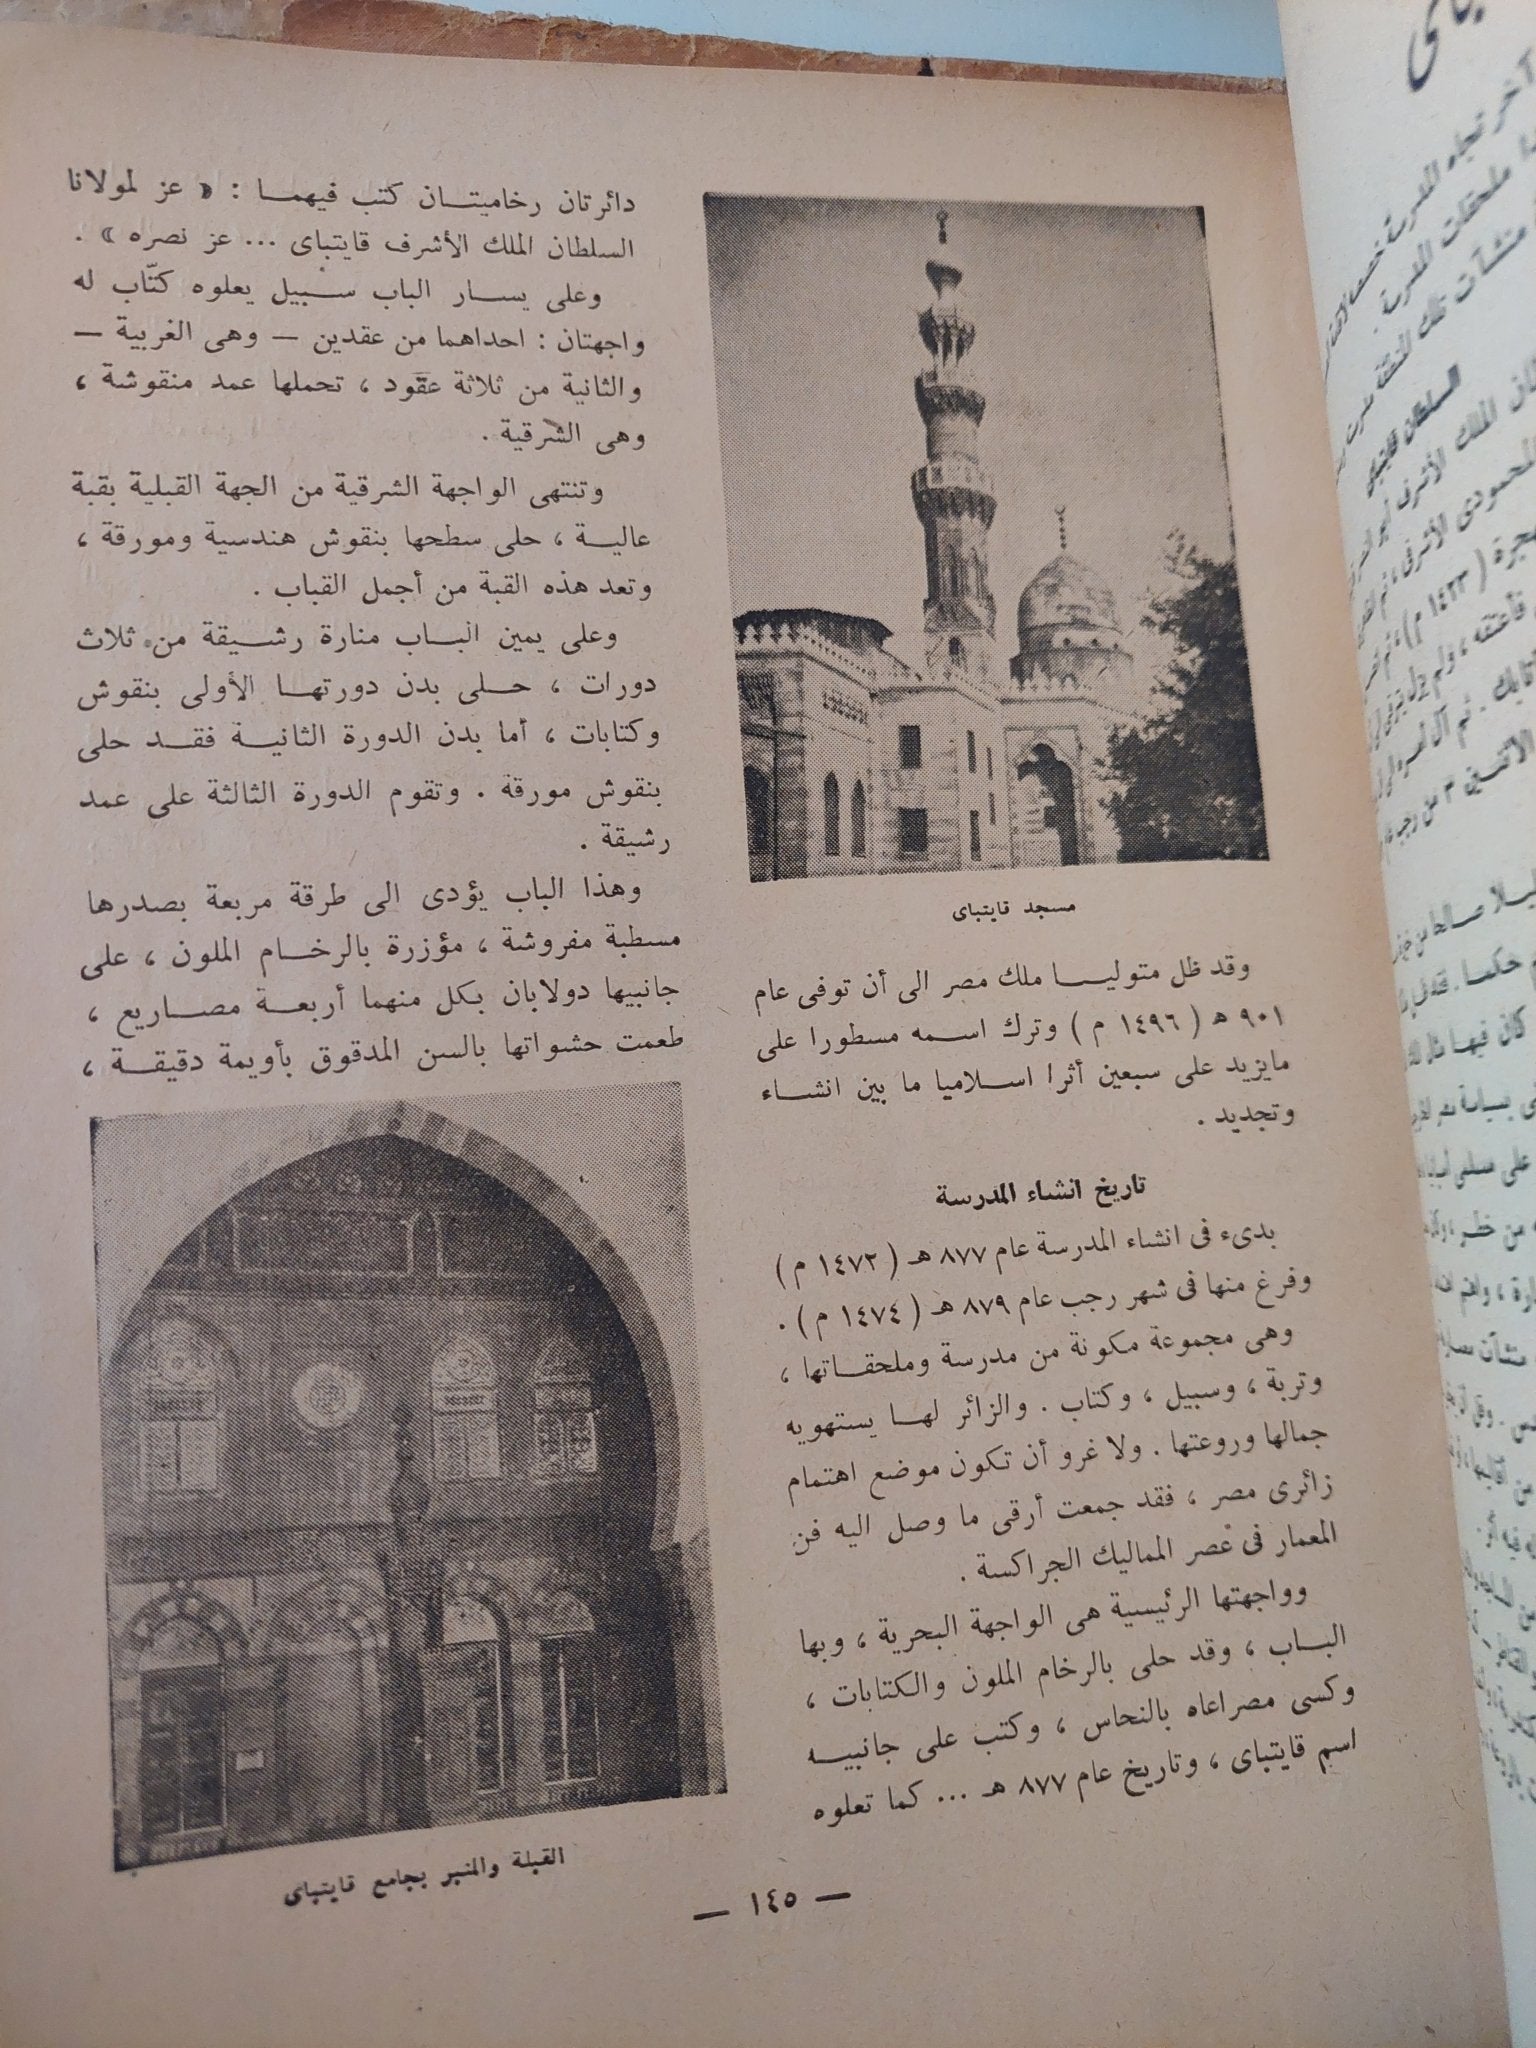 مسجد قايتباى
وقد ظل متوليا ملك مصر الى أن توفى عام
٩٠١ هـ ( ١٤٩٦ م ) وترك اسمه مسطورا على
مايزيد على سبعين أثرا اسلاميا ما بين انشاء
وتجديد .
تاريخ انشاء المدرسة
بدىء فى انشاء المدرسة عام ٨٧٧ هـ ( ١٤٧٢ م )
وفرغ منها فى شهر رجب عام ٨٧٩ هـ ( ١٤٧٤ م ) .
وهى مجموعة مكونة من مدرسة وملحقاتها ،
وتربة ، وسبيل ، وكتاب . والزائر لها يستهويه
جمالها وروعتها . ولا غرو أن تكون موضع اهتمام
زائرى مصر ، فقد جمعت أرقى ما وصل اليه فن
المعمار فى عصر المماليك الجراكسة .
وواجهتها الرئيسية هى الواجهة البحرية ، وبها
الباب ، وقد حلى بالرخام الملون والكتابات ،
وكسى مصراعاه بالنحاس ، وكتب على جانبيه
اسم قايتباى ، وتاريخ عام ٨٧٧ هـ ... كما تعلوه
دائرتان رخاميتان كتب فيهما : « عز لمولانا
السلطان الملك الأشرف قايتباى ... عز نصره » .
وعلى يسار الباب سبيل يعلوه كتّاب له
واجهتان : احداهما من عقدين — وهى الغربية —
والثانية من ثلاثة عقود ، تحملها عمد منقوشة ،
وهى الشرقية .
وتنتهى الواجهة الشرقية من الجهة القبلية بقبة
عالية ، حلى سطحها بنقوش هندسية ومورقة ،
وتعد هذه القبة من أجمل القباب .
وعلى يمين الباب منارة رشيقة من ثلاث
دورات ، حلى بدن دورتها الأولى بنقوش
وكتابات ، أما بدن الدورة الثانية فقد حلى
بنقوش مورقة . وتقوم الدورة الثالثة على عمد
رشيقة .
وهذا الباب يؤدى الى طرقة مربعة بصدرها
مسطبة مفروشة ، مؤزرة بالرخام الملون ، على
جانبيها دولابان بكل منهما أربعة مصاريع ،
طعمت حشواتها بالسن المدقوق بأويمة دقيقة ،
القبلة والمنبر بجامع قايتباى
— ١٤٥ —
السلطان قايتباى